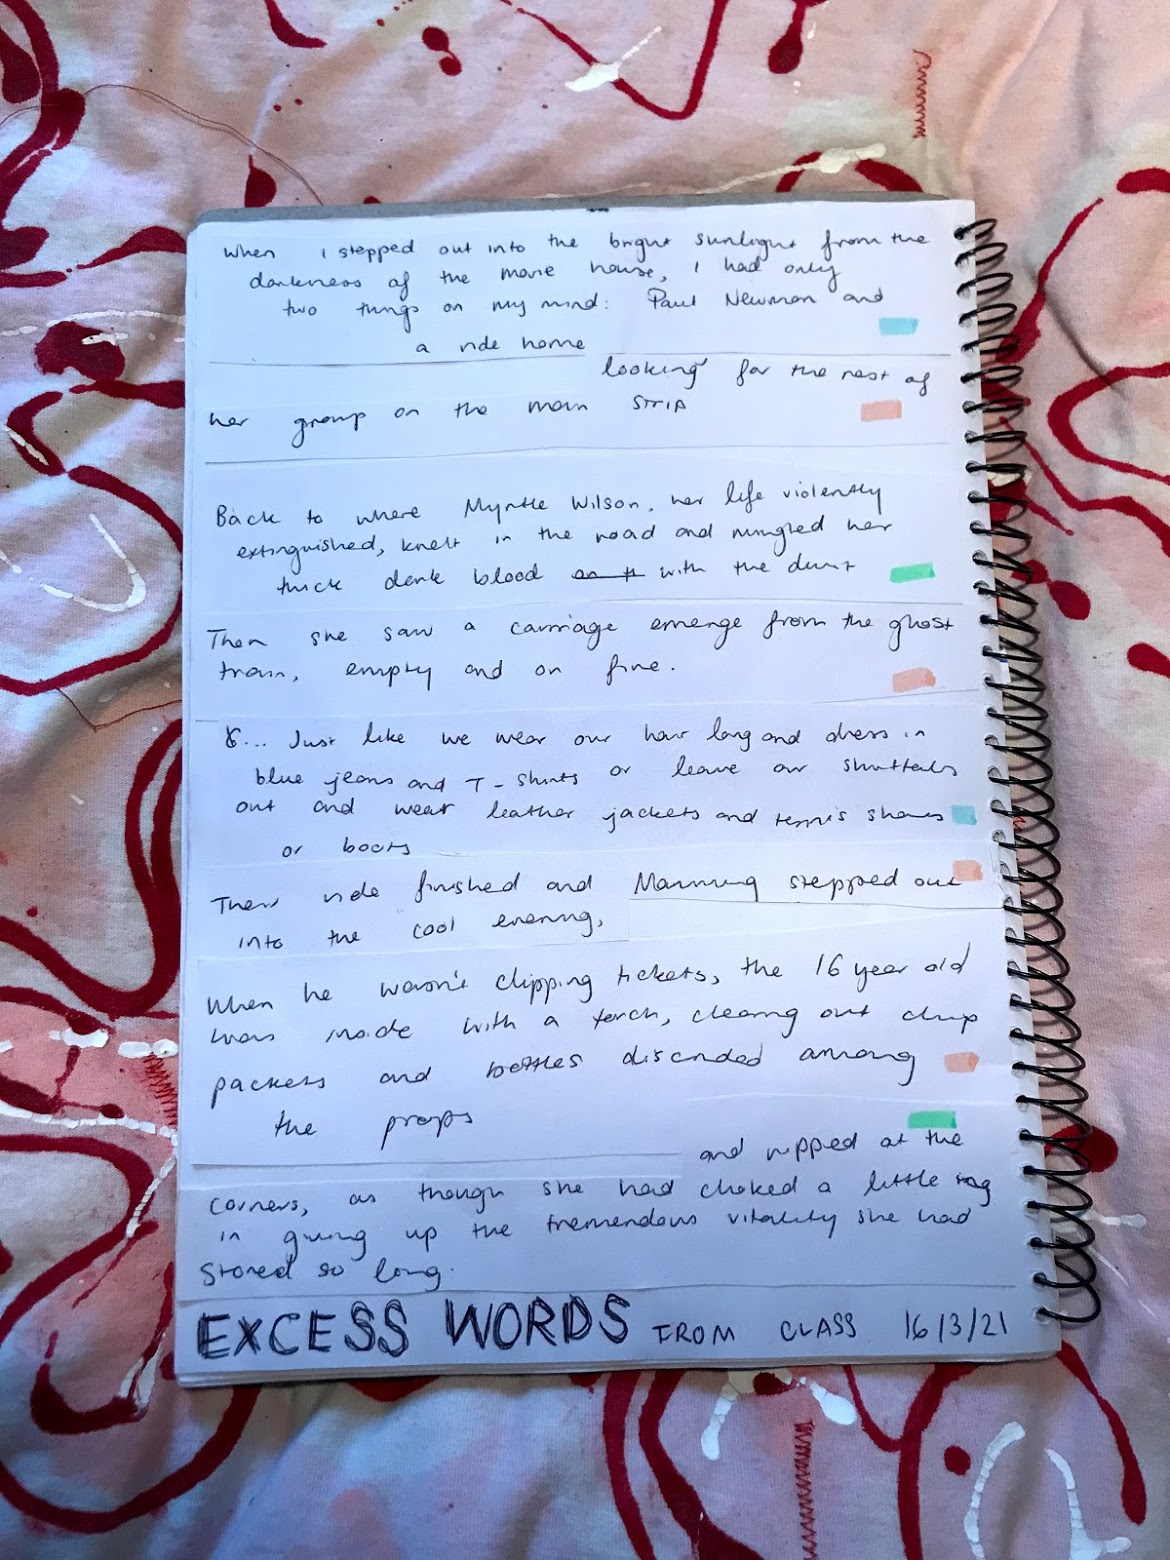 When I stepped out into the bright sunlight from the
darkness of the movie house, I had only
two things on my mind: Paul Newman and
a ride home
looking for the rest of
her group on the main STRIP
Back to where Myrtle Wilson, her life violently
extinguished, knelt in the road and mingled her
thick dark blood on th with the dust
Then she saw a carriage emerge from the ghost
train, empty and on fire.
... Just like we wear our hair long and dress in
blue jeans and T-shirts or leave our shirttails
out and wear leather jackets and tennis shoes
or boots
Their ride finished and Manning stepped out
into the cool evening,
When he wasn't clipping tickets, the 16 year old
was inside with a torch, clearing out chip
packets and bottles discarded among
the props
and ripped at the
corners, as though she had choked a little
in giving up the tremendous vitality she had
stored so long.
EXCESS WORDS FROM CLASS 16/3/21